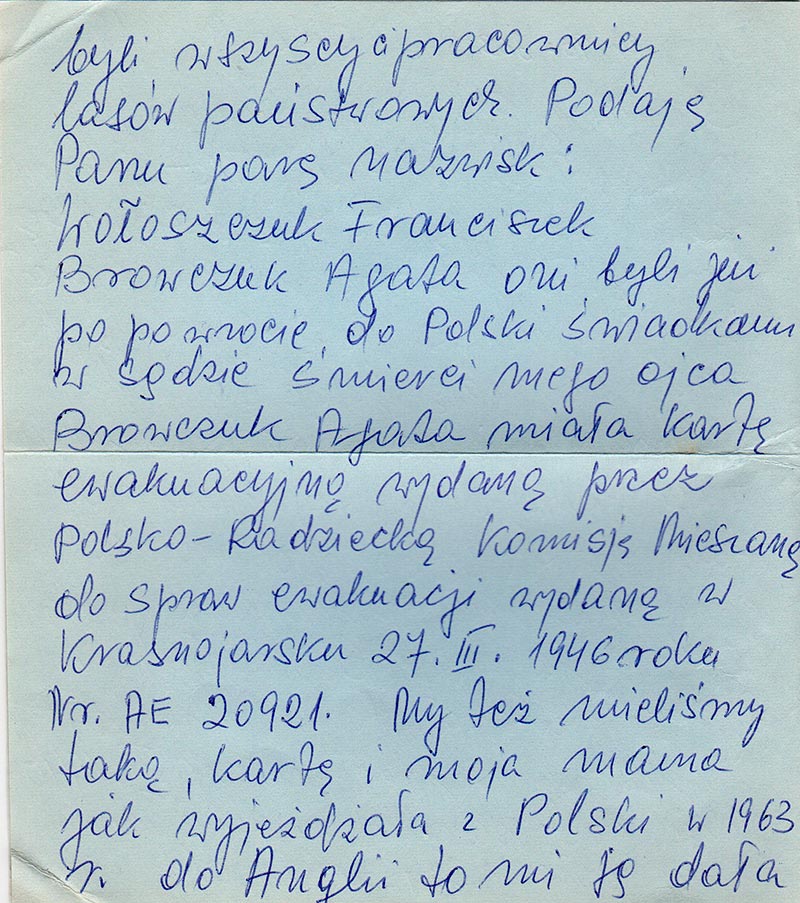 byli wszyscy ci pracownicy
lasów państwowych. Podaję
Panu parę nazwisk:
Wołoszczuk Franciszek
Browczuk Agata oni byli już
po powrocie do Polski świadkami
w sądzie śmierci mego ojca
Browczuk Agata miała kartę
ewakuacyjną wydaną przez
Polsko-Radziecką Komisję Mieszaną
do spraw ewakuacji wydaną w
Krasnojarsku 27. III. 1946 roku
Nr. AE 20921. My też mieliśmy
taką, kartę i moja mama
jak wyjeżdżała z Polski w 1963
r. do Anglii to mi ją dała